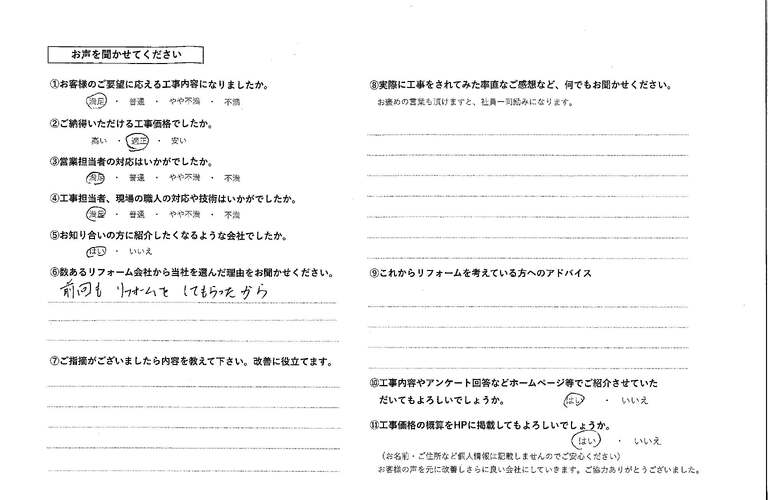 お声を聞かせてください
①お客様のご要望に応える工事内容になりましたか。
満足 ・ 普通 ・ やや不満 ・ 不満
②ご納得いただける工事価格でしたか。
高い ・ 適正 ・ 安い
③営業担当者の対応はいかがでしたか。
満足 ・ 普通 ・ やや不満 ・ 不満
④工事担当者、現場の職人の対応や技術はいかがでしたか。
満足 ・ 普通 ・ やや不満 ・ 不満
⑤お知り合いの方に紹介したくなるような会社でしたか。
はい ・ いいえ
⑥数あるリフォーム会社から当社を選んだ理由をお聞かせください。
前回も リフォームを してもらったから
⑦ご指摘がございましたら内容を教えて下さい。改善に役立てます。
⑧実際に工事をされてみた率直なご感想など、何でもお聞かせください。
お褒めの言葉も頂けますと、社員一同励みになります。
⑨これからリフォームを考えている方へのアドバイス
⑩工事内容やアンケート回答などホームページ等でご紹介させていた
だいてもよろしいでしょうか。 はい ・ いいえ
⑪工事価格の概算をHPに掲載してもよろしいでしょうか。
はい ・ いいえ
（お名前・ご住所など個人情報は記載しませんのでご安心ください）
お客様の声を元に改善しさらに良い会社にしていきます。ご協力ありがとうございました。